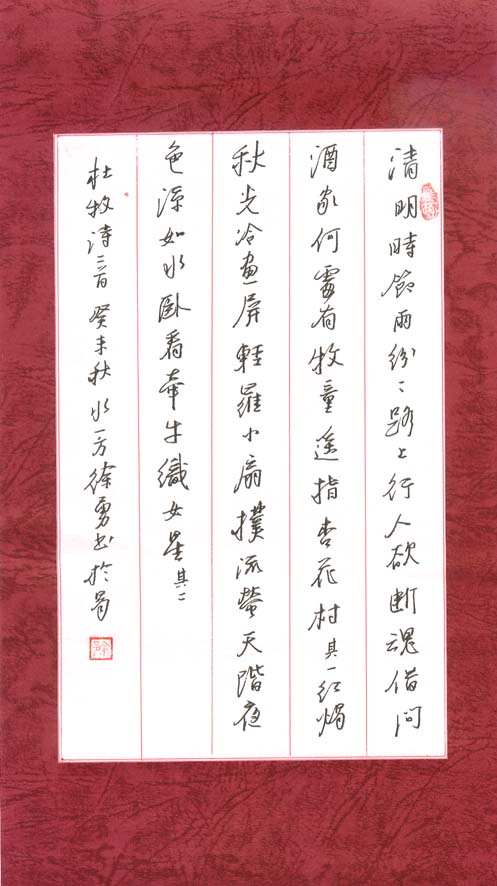 清明時節雨紛〻路上行人欲断魂借问
酒家何處有牧童遥指杏花村其一红燭
秋光冷画屏輕羅小扇撲流螢天階夜
色凉如水卧看牽牛織女星其二
杜牧诗二首癸未秋水一方徐勇书於蜀